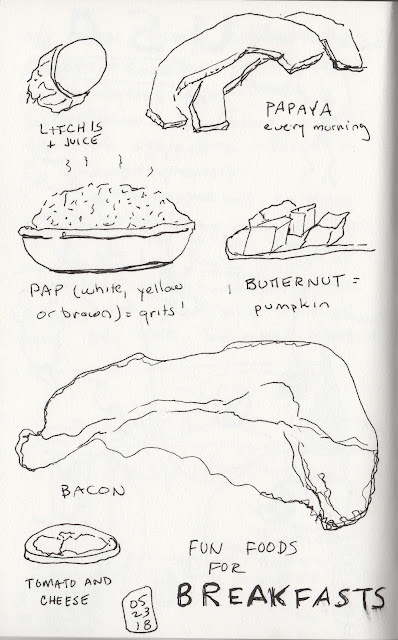 LITCHIS
+ JUICE
PAPAYA
every morning
PAP (white, yellow
or brown) = grits!
BUTTERNUT =
pumpkin
BACON
TOMATO AND
CHEESE
05
23
18
FUN FOODS
FOR
BREAKFASTS